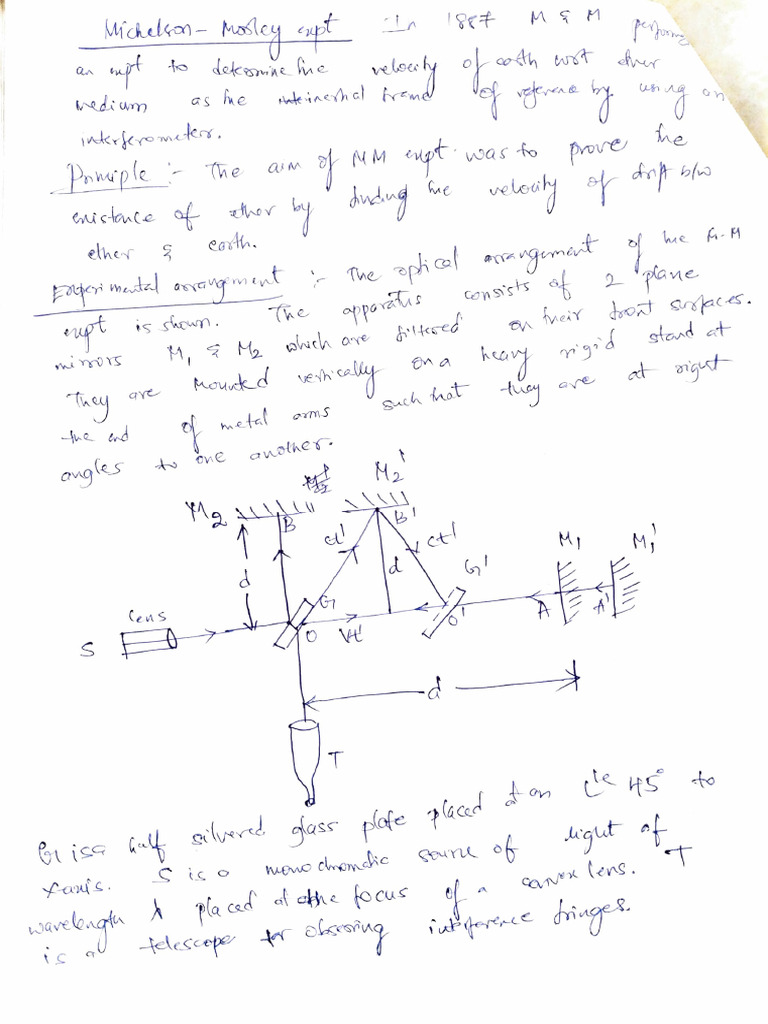 Michelson - Mosley expt In 1887 M & M performe
an expt to determine the velocity of earth wrt ether
medium as the inertial frame of reference by using an
interferometer.
Principle :- The aim of MM expt was to prove the
existance of ether by finding the velocity of drift b/w
ether & earth.
Experimental arrangement :- The optical arrangement of the M-M
expt is shown. The apparatus consists of 2 plane
mirrors M1 & M2 which are filtered on their front surfaces.
They are Mounted vertically on a heavy rigid stand at
the end of metal arms such that they are at right
angles to one another.
M2 M2'
B B'
ct' ct'
d d
G G'
M1 M1'
Lens
S O Vt' O' A A'
d
T
G is a half silvered glass plate placed at an L'le 45° to
X axis. S is a monochromatic source of light of
wavelength λ placed at the focus of a convex lens. T
is a telescope for obsering interference fringes.